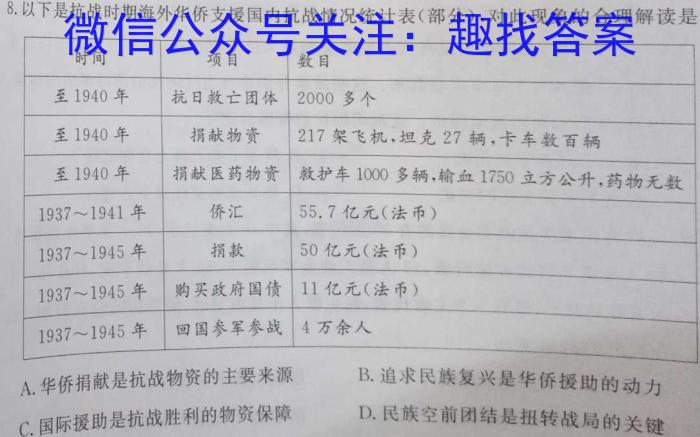 8.以下是抗战时期海外华侨支援国内抗战情况统计表(部分) 对此现象的合理解读是
微信公众号关注：趣找答案
时间 项目 数目
至1940年 抗日救亡团体 2000多个
至1940年 捐献物资 217架飞机,坦克27辆,卡车数百辆
至1940年 捐献医药物资 救护车1000多辆,输血1750立方公升,药物无数
1937～1941年 侨汇 55.7亿元(法币)
1937～1945年 捐款 50亿元(法币)
1937～1945年 购买政府国债 11亿元(法币)
1937～1945年 回国参军参战 4万余人
A.华侨捐献是抗战物资的主要来源 B.追求民族复兴是华侨援助的动力
C.国际援助是抗战胜利的物资保障 D.民族空前团结是扭转战局的关键